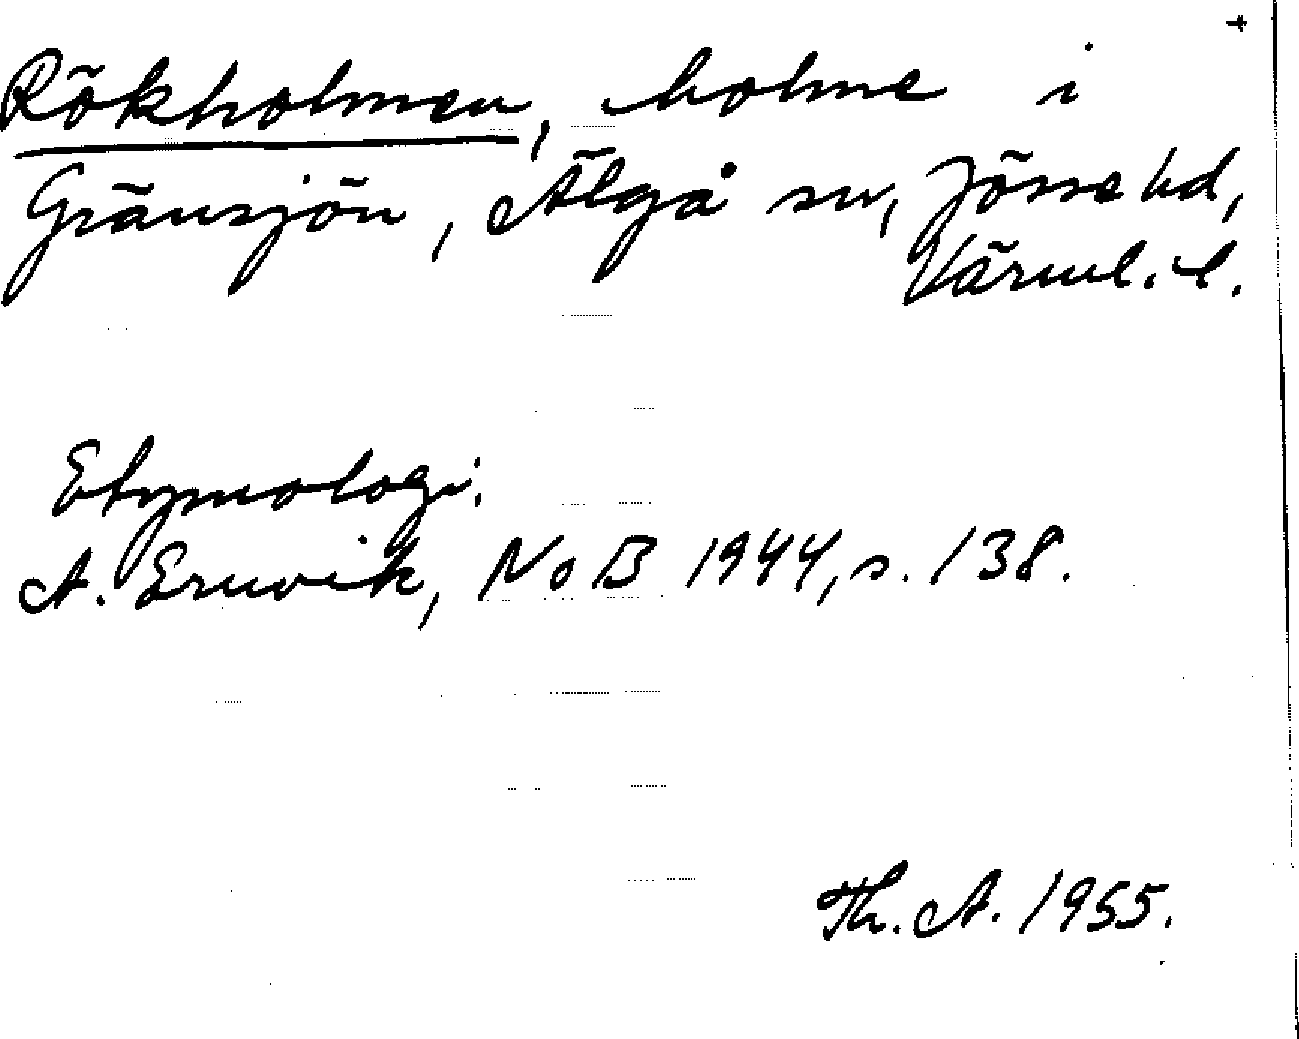 +
Rökholmen, holme i
Gränsjön, Älgå sn, Jösse hd,
Värml. l.
Etymologi:
A. Ernvik, NoB 1944, s. 138.
Th. A. 1955.